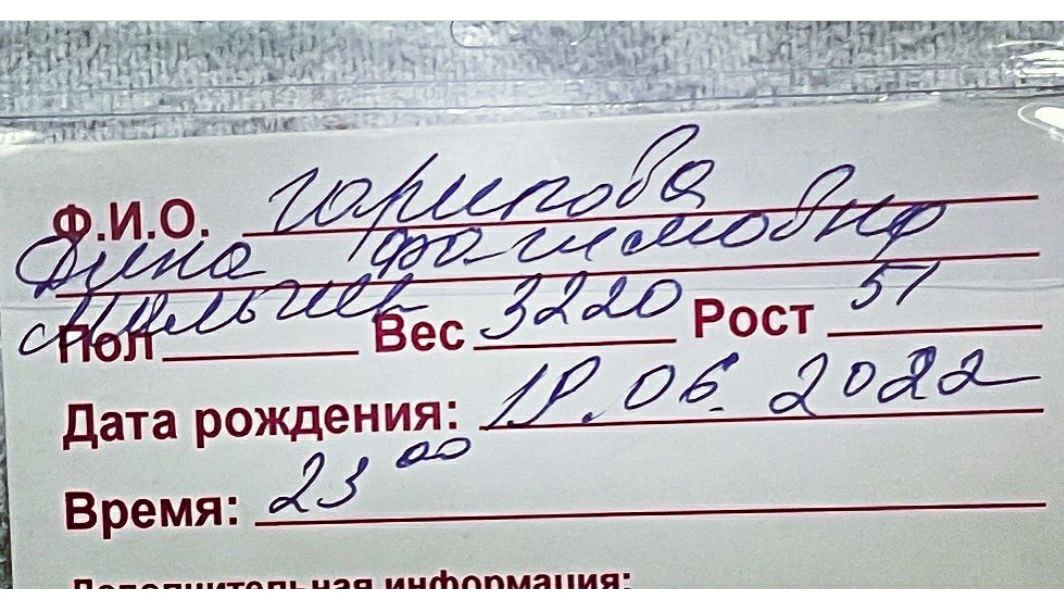 Ф.И.О. Гарипова
Дина Фагимовна
Пол Мальчик Вес 3220 Рост 51
Дата рождения: 19.06.2022
Время: 23 00
Дополнительная информация: